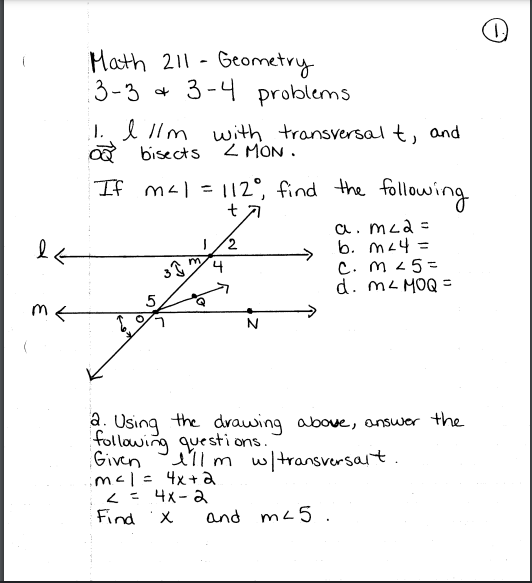 1.
Math 211 - Geometry
3-3 & 3-4 problems
1. l // m with transversal t, and
OQ bisects ∠MON.
If m∠1 = 112°, find the following
t
a. m∠2 =
l 1 2
b. m∠4 =
3 M 4
c. m∠5 =
d. m∠MOQ =
5 Q
m
6 O 7 N
2. Using the drawing above, answer the
following questions.
Given l // m w/transversal t.
m∠1 = 4x+2
∠ = 4x-2
Find x and m∠5.